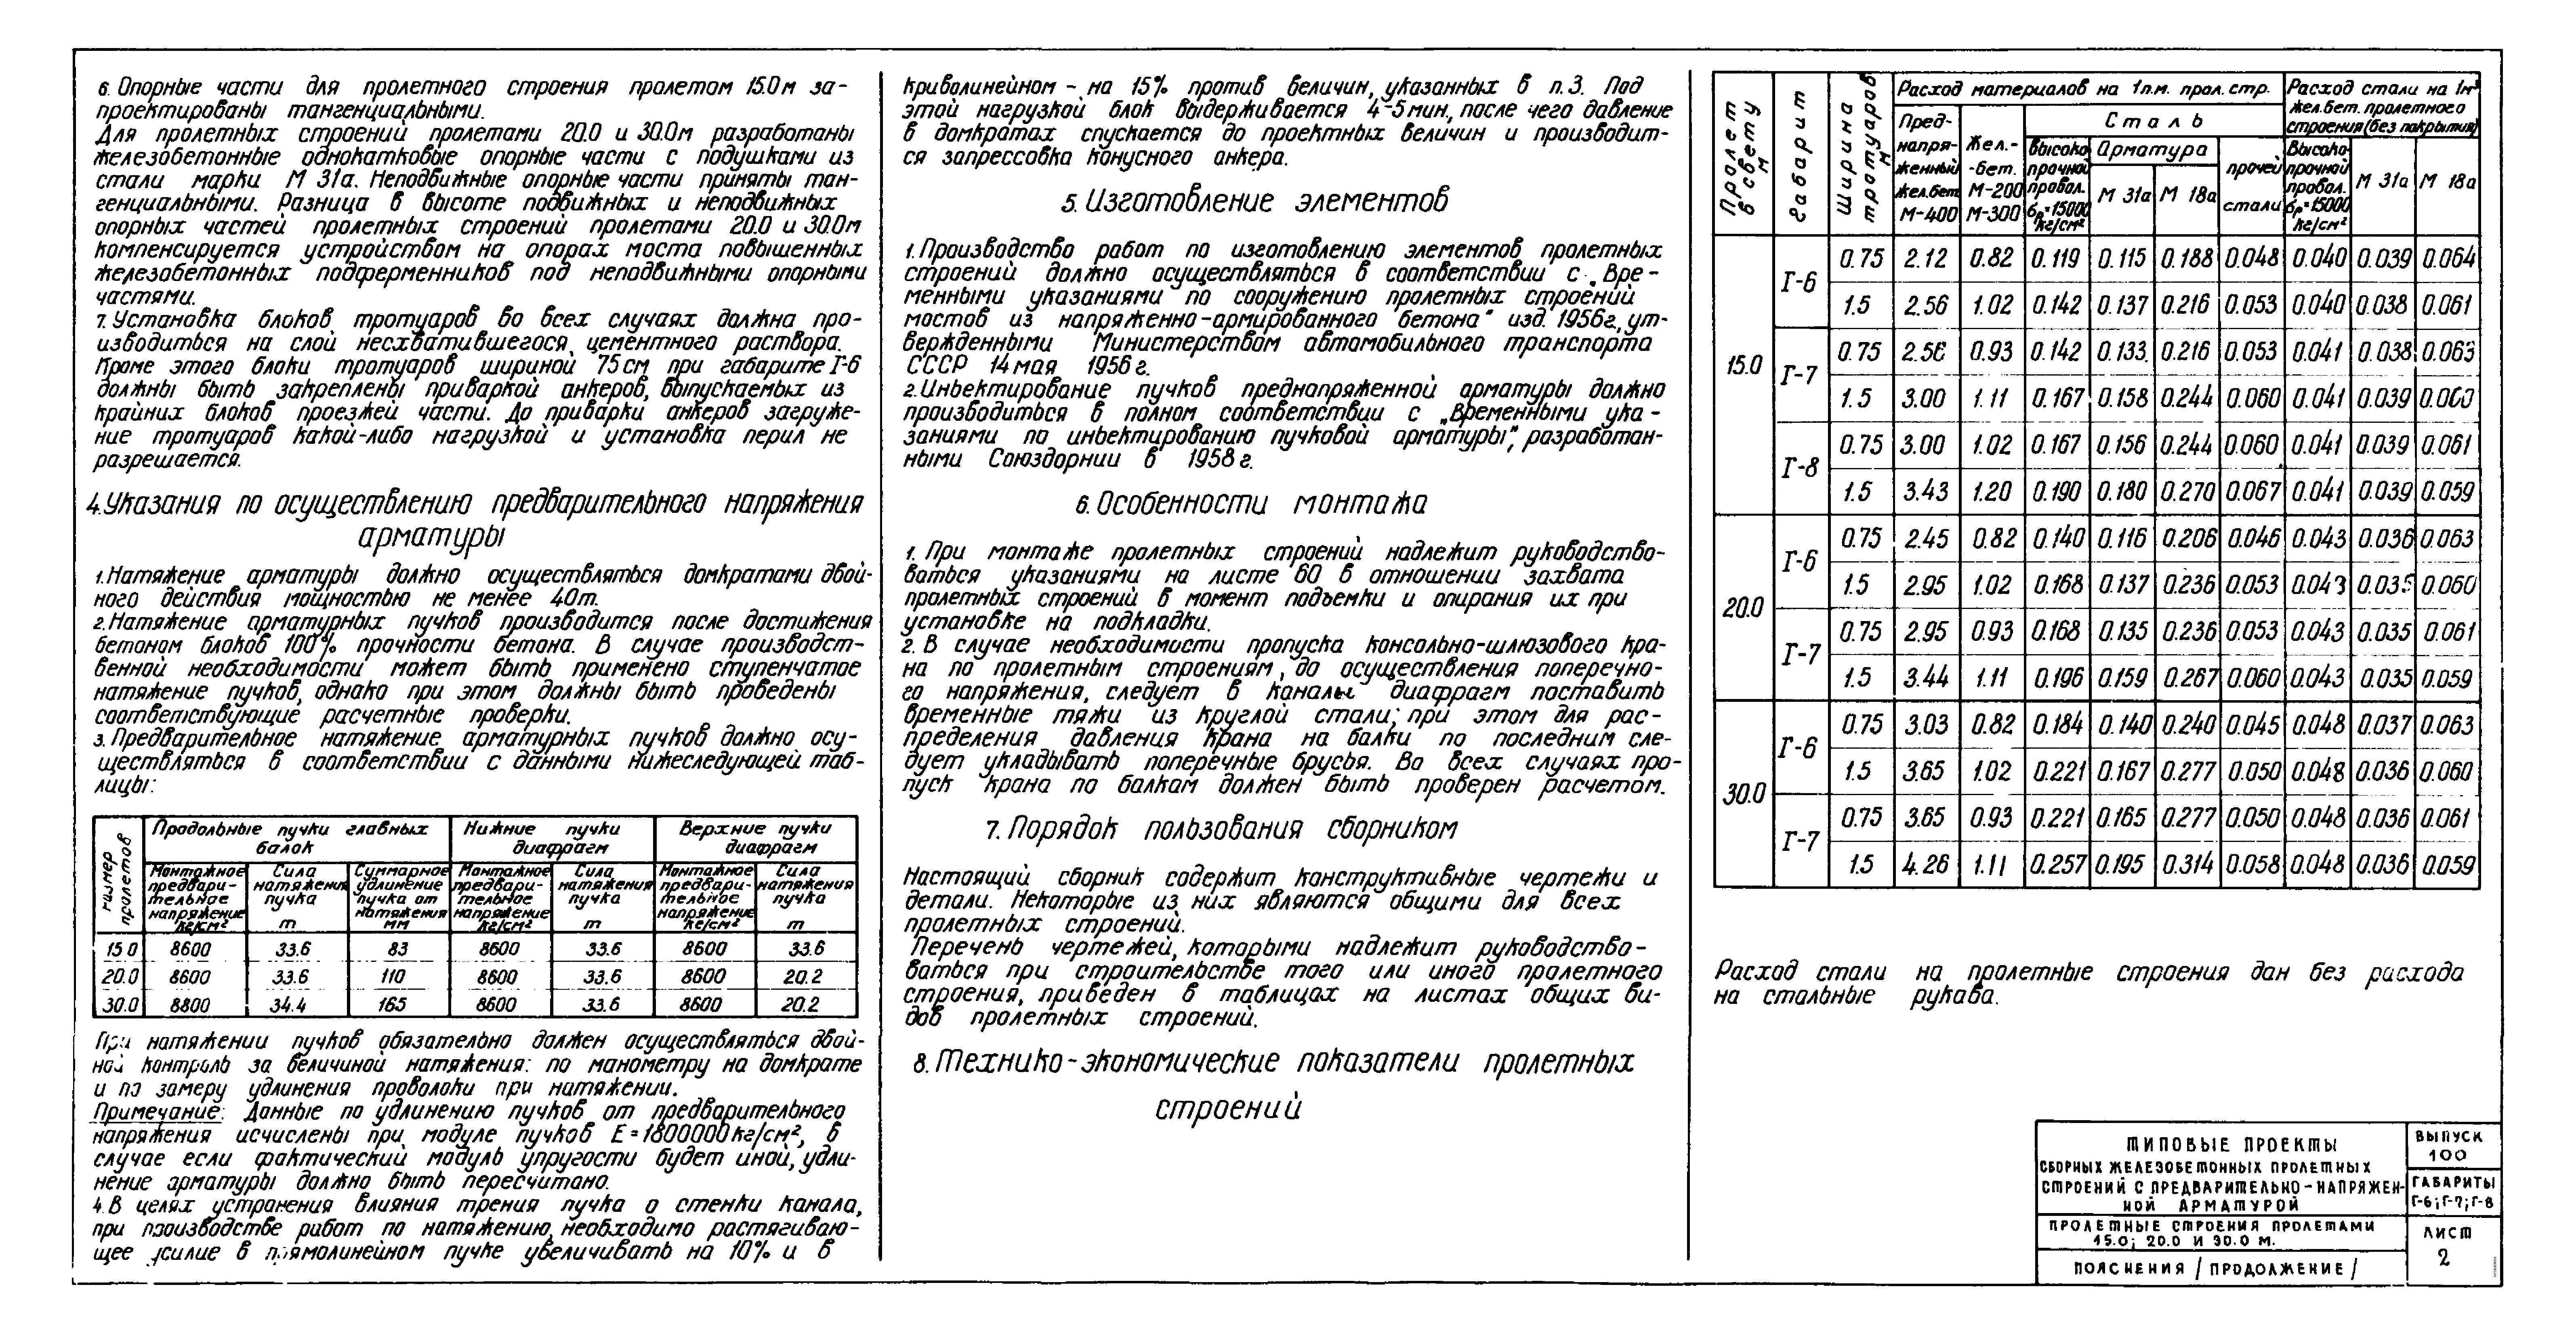 6. Опорные части для пролетного строения пролетом 15.0м за-
проектированы тангенциальными.
Для пролетных строений пролетами 20.0 и 30.0м разработаны
железобетонные однокатковые опорные части с подушками из
стали марки М 31а. Неподвижные опорные части приняты тан-
генциальными. Разница в высоте подвижных и неподвижных
опорных частей пролетных строений пролетами 20.0 и 30.0м
компенсируется устройством на опорах моста повышенных
железобетонных подферменников под неподвижными опорными
частями.
7. Установка блоков тротуаров во всех случаях должна про-
изводиться на слой несхватившегося цементного раствора.
Кроме этого блоки тротуаров шириной 75см при габарите Г-6
должны быть закреплены приваркой анкеров, выпускаемых из
крайних блоков проезжей части. До приварки анкеров загруже-
ние тротуаров какой-либо нагрузкой и установка перил не
разрешается.
4. Указания по осуществлению предварительного напряжения
арматуры
1. Натяжение арматуры должно осуществляться домкратами двой-
ного действия мощностью не менее 40т.
2. Натяжение арматурных пучков производится после достижения
бетоном блоков 100% прочности бетона. В случае производст-
венной необходимости может быть применено ступенчатое
натяжение пучков, однако при этом должны быть проведены
соответствующие расчетные проверки.
3. Предварительное натяжение арматурных пучков должно осу-
ществляться в соответствии с данными нижеследующей таб-
лицы:
размер пролетов | Продольные пучки главных балок | Нижние пучки диафрагм | Верхние пучки диафрагм
Монтажное предвари-тельное напряжение кг/см² | Сила натяжения пучка т | Суммарное удлинение пучка от натяжения мм | Монтажное предвари-тельное напряжение кг/см² | Сила натяжения пучка т | Монтажное предвари-тельное напряжение кг/см² | Сила натяжения пучка т
15.0 8600 33.6 83 8600 33.6 8600 33.6
20.0 8600 33.6 110 8600 33.6 8600 20.2
30.0 8800 34.4 165 8600 33.6 8600 20.2
При натяжении пучков обязательно должен осуществляться двой-
ной контроль за величиной натяжения: по манометру на домкрате
и по замеру удлинения проволоки при натяжении.
Примечание: Данные по удлинению пучков от предварительного
напряжения исчислены при модуле пучков Е=1800000кг/см², в
случае если фактический модуль упругости будет иной, удли-
нение арматуры должно быть пересчитано.
4. В целях устранения влияния трения пучка о стенки канала,
при производстве работ по натяжению, необходимо растягиваю-
щее усилие в прямолинейном пучке увеличивать на 10% и в
криволинейном - на 15% против величин, указанных в п.3. Под
этой нагрузкой блок выдерживается 4-5мин, после чего давление
в домкратах спускается до проектных величин и производит-
ся запрессовка конусного анкера.
5. Изготовление элементов
1. Производство работ по изготовлению элементов пролетных
строений должно осуществляться в соответствии с „Вре-
менными указаниями по сооружению пролетных строений
мостов из напряженно-армированного бетона" изд. 1956г., ут-
вержденными Министерством автомобильного транспорта
СССР 14 мая 1956г.
2. Инъектирование пучков преднапряженной арматуры должно
производиться в полном соответствии с „Временными ука-
заниями по инъектированию пучковой арматуры", разработан-
ными Союздорнии в 1958г.
6. Особенности монтажа
1. При монтаже пролетных строений надлежит руководство-
ваться указаниями на листе 60 в отношении захвата
пролетных строений в момент подъемки и опирания их при
установке на подкладки.
2. В случае необходимости пропуска консольно-шлюзового кра-
на по пролетным строениям, до осуществления поперечно-
го напряжения, следует в каналы диафрагм поставить
временные тяжи из круглой стали; при этом для рас-
пределения давления крана на балки по последним сле-
дует укладывать поперечные брусья. Во всех случаях про-
пуск крана по балкам должен быть проверен расчетом.
7. Порядок пользования сборником
Настоящий сборник содержит конструктивные чертежи и
детали. Некоторые из них являются общими для всех
пролетных строений.
Перечень чертежей, которыми надлежит руководство-
ваться при строительстве того или иного пролетного
строения, приведен в таблицах на листах общих ви-
дов пролетных строений.
8. Технико-экономические показатели пролетных
строений
Пролет в свету м | Габарит | Ширина тротуаров м | Расход материалов на 1 п.м. прол. стр. | Расход стали на 1м³ жел.бет. пролетного строения (без покрытия)
Пред-напря-женный жел.бет М-400 | Жел.-бет. М-200 М-300 | Сталь | Высоко-прочной провол. бр=15000 кг/см² | М 31а | М 18а
Высоко прочной провол. бр=15000 кг/см² | Арматура М 31а М 18а | прочей стали
15.0 Г-6 0.75 2.12 0.82 0.119 0.115 0.188 0.048 0.040 0.039 0.064
1.5 2.56 1.02 0.142 0.137 0.216 0.053 0.040 0.038 0.061
Г-7 0.75 2.56 0.93 0.142 0.133 0.216 0.053 0.041 0.038 0.063
1.5 3.00 1.11 0.167 0.158 0.244 0.060 0.041 0.039
Г-8 0.75 3.00 1.02 0.167 0.156 0.244 0.060 0.041 0.039 0.061
1.5 3.43 1.20 0.190 0.180 0.270 0.067 0.041 0.039 0.059
20.0 Г-6 0.75 2.45 0.82 0.140 0.116 0.206 0.046 0.043 0.036 0.063
1.5 2.95 1.02 0.168 0.137 0.236 0.053 0.043 0.035 0.060
Г-7 0.75 2.95 0.93 0.168 0.135 0.236 0.053 0.043 0.035 0.061
1.5 3.44 1.11 0.196 0.159 0.267 0.060 0.043 0.035 0.059
30.0 Г-6 0.75 3.03 0.82 0.184 0.140 0.240 0.045 0.048 0.037 0.063
1.5 3.65 1.02 0.221 0.167 0.277 0.050 0.048 0.036 0.060
Г-7 0.75 3.65 0.93 0.221 0.165 0.277 0.050 0.048 0.036 0.061
1.5 4.26 1.11 0.257 0.195 0.314 0.058 0.048 0.036 0.059
Расход стали на пролетные строения дан без расхода
на стальные рукава.
ТИПОВЫЕ ПРОЕКТЫ
СБОРНЫХ ЖЕЛЕЗОБЕТОННЫХ ПРОЛЕТНЫХ
СТРОЕНИЙ С ПРЕДВАРИТЕЛЬНО-НАПРЯЖЕН-
НОЙ АРМАТУРОЙ
ВЫПУСК
100
ГАБАРИТЫ
Г-6; Г-7; Г-8
ПРОЛЕТНЫЕ СТРОЕНИЯ ПРОЛЕТАМИ
15.0; 20.0 И 30.0 М.
ЛИСТ
2
ПОЯСНЕНИЯ /ПРОДОЛЖЕНИЕ/